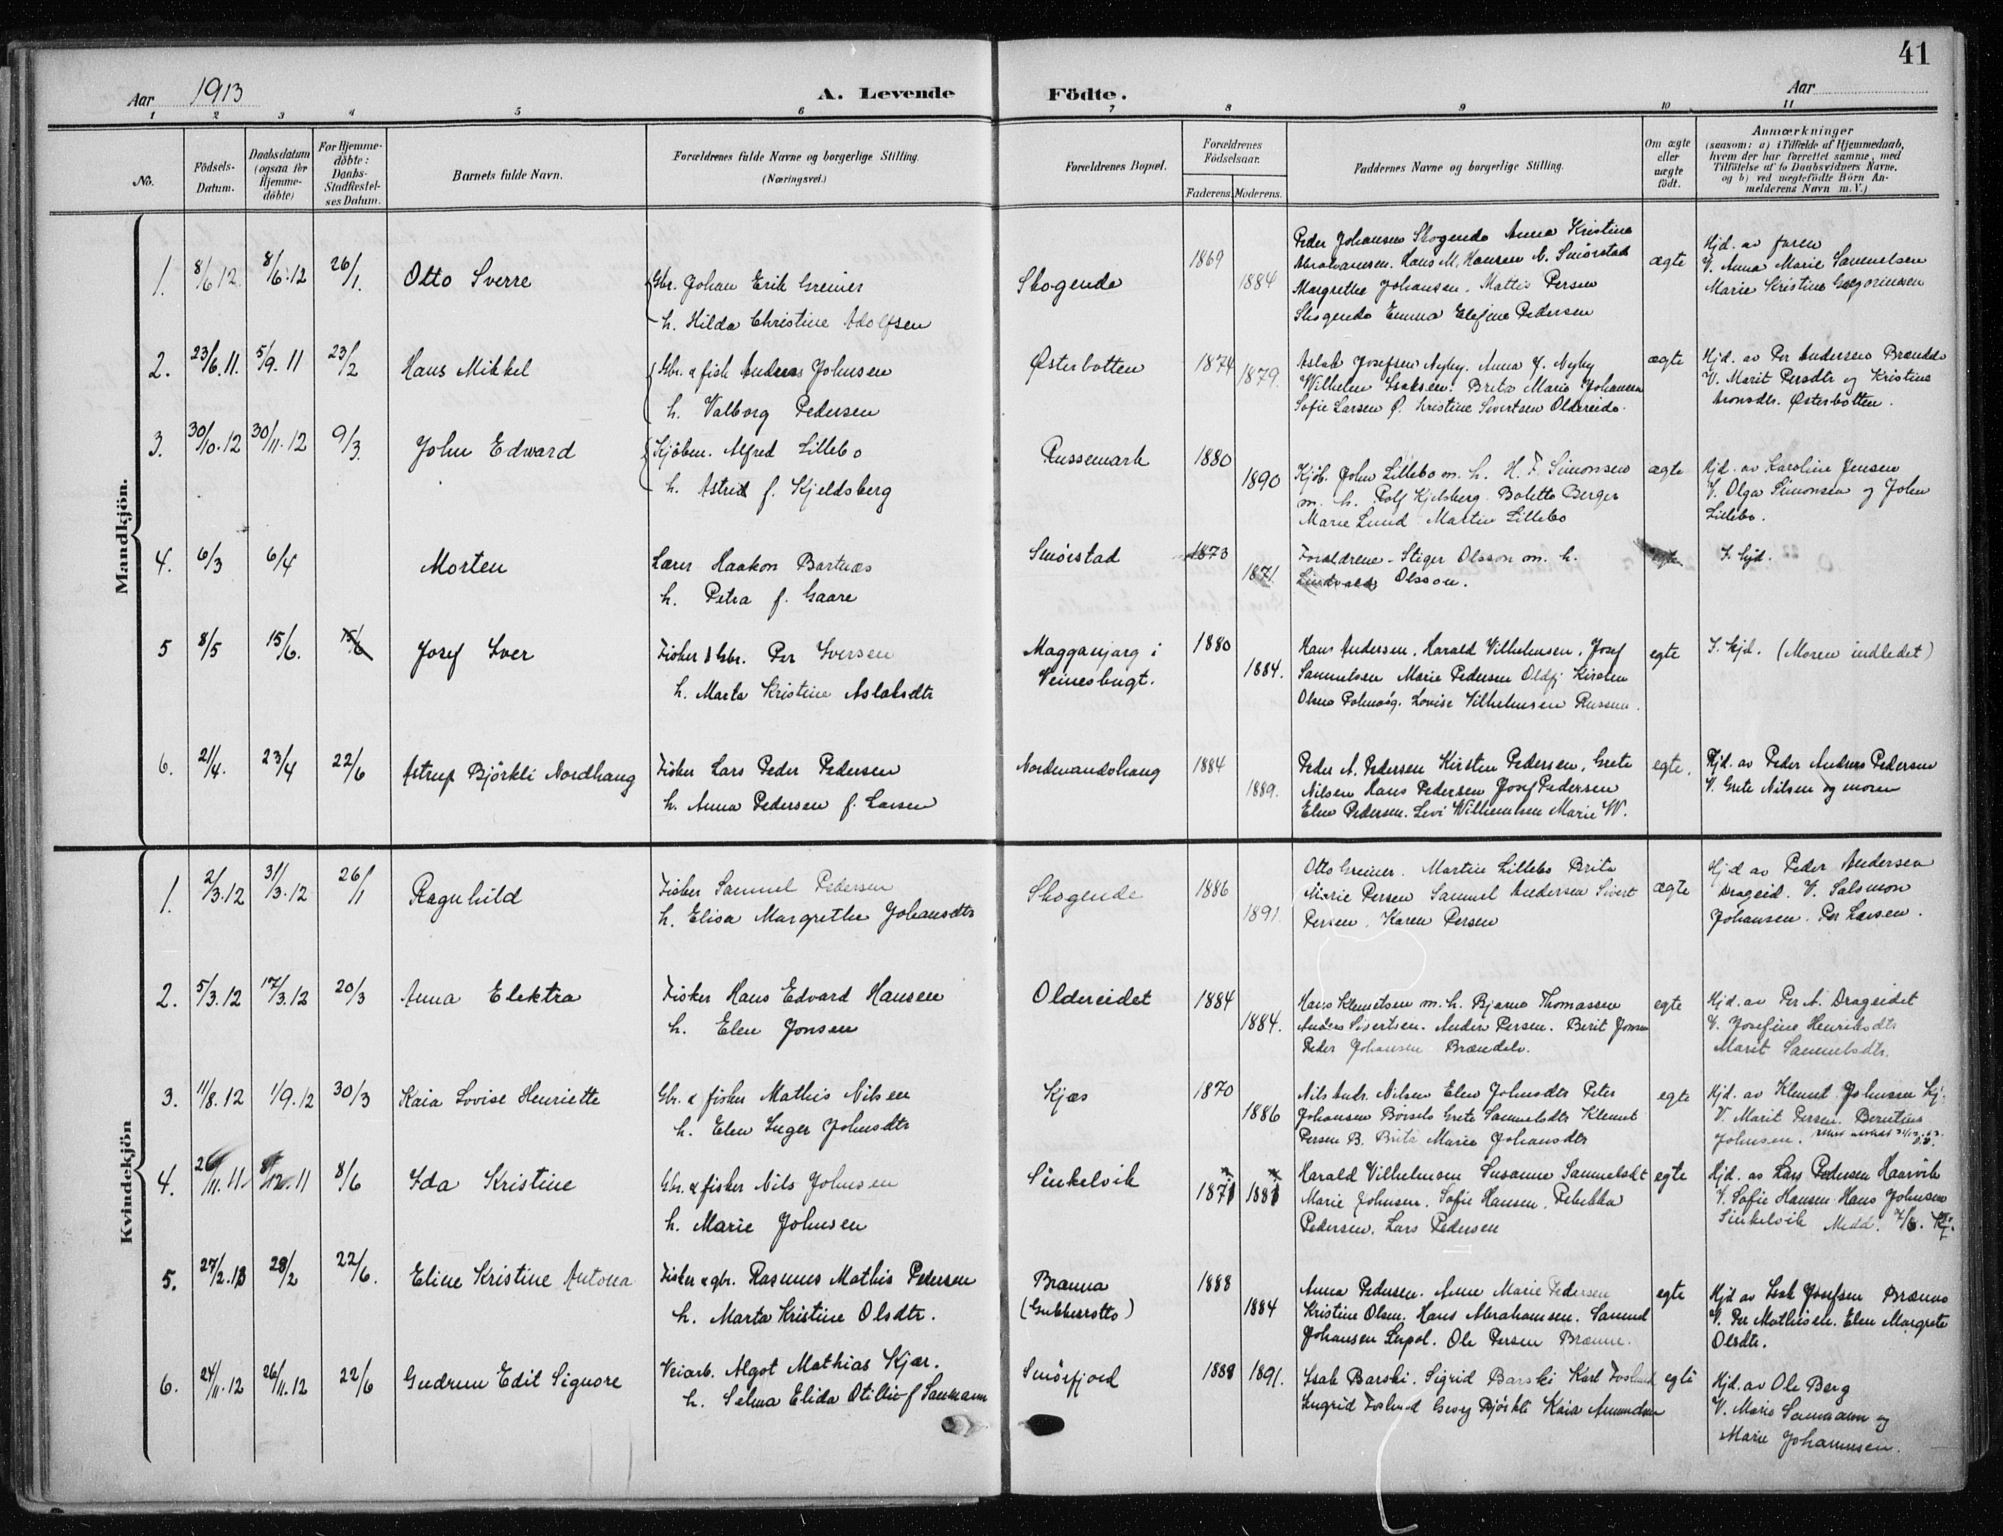 41
Aar 1913 A. Levende Födte. Aar
1 2 3 4 5 6 7 8 9 10 11
No. Födsels-Datum. Daabsdatum (ogsaa for Hjemmedöbte) For Hjemmedöbte: Daabs-Stadfæstelses Datum. Barnets fulde Navn. Forældrenes fulde Navne og borgerlige Stilling. (Næringsvei.) Forældrenes Bopæl. Forældrenes Födselsaar. Faderens Moderens. Faddernes Navne og borgerlige Stilling. Om ægte eller uægte födt. Anmærkninger (saasom: a) i Tilfælde af Hjemmedaab, hvem der har forrettet samme, med Tilföielse af to Daabsvidners Navne, og b) ved uægtefödte Börn Anmelderens Navn m. V.)
Mandkjön.
1. 8/6 12 8/6 12 26/1. Otto Sverre Gbr. Johan Erik Greiner
h. Hilda Christine Adolfsen
Skogende 1869 1884
Peder Johansen Skogende Anna Kristine
Abrahamsen. Hans M. Hansen A. Smørstad
Margrethe Johansen. Mattis Persen
Skogende Emma Elefine Pedersen
ægte
Hjd. av faren
V. Anna Marie Samuelsen
Marie Kristine Gregoriussen
2. 23/6. 11. 5/9. 11 23/2 Hans Mikkel Gbr. & fisk Andreas Johnsen
h. Valborg Pedersen
Østerbotten 1874 1879.
Aslak Josefsen Nyby. Anna J. Nyby
Wilhelm Isaksen. Brita Marie Johansen
Sofie Larsen Ø. Kristine Sivertsen Oldereide.
ægte
Hjd. av Per Andersen Brændelv
V. Marit Persdtr og Kristine
Aronsdtr. Østerbotten.
3. 30/10. 12 30/11. 12 9/3. John Edward Kjöbm. Alfred Lillebo
h. Astrid f. Kjeldsberg
Russemark 1880 1890
Kjöb. John Lillebo m. h. H. F. Simonsen
m. h. Rolf Kjelsberg. Bolette Berger
Marie Lund Martin Lillebo
ægte
Hjd. av Karoline Jensen
V. Olga Simonsen og John
Lillebo.
4. 6/3 6/4 Morten Lærer Haakon Bartnæs
h. Petra f. Gaare
Smørstad 1873 1871.
Forældrene. Stiger Olsson m. h.
Lindvald Olsson.
egte
I. Kjd.
5 8/5 15/6. 15/6 Josef Iver Fisker & Gbr. Per Iversen
h. Marta Kristine Aslaksdtr
Magganjarg i
Veinesbugt.
1880 1884.
Hans Andersen. Harald Vilhelmsen. Josef
Samuelsen Marie Pedersen Oldfj Kirsten
Olsen Lovise Vilhelmsen Russem.
egte
I. kjd. (Moren indledet)
6. 21/4. 23/4 22/6 Astrup Björkli Nordhaug Fisker Lars Peder Pedersen
h. Anna Pedersen f. Larsen
Nordmandshaug 1884 1889.
Peder A. Pedersen Kirsten Pedersen, Grete
Nilsen Hans Pedersen Josef Pedersen
Elen Pedersen. Levi Wilhelmsen Marie W.
egte.
Hjd. av Peder Andreas Pedersen
V. Grete Nilsen og moren
Kvindekjön
1. 2/3. 12 31/3. 12 26/1 Ragnhild Fisker Samuel Pedersen
h. Elisa Margrethe Johansdtr
Skogende 1886 1891.
Otto Greiner. Martin Lillebo Brita
Marie Persen Samuel Andersen Sivert
Persen. Karen Persen
ægte
Hjd av Peder Andersen
Drageid. V. Salomon
Johansen. Per Larsen.
2. 5/3. 12 17/3. 12 20/3 Anna Elektra Fisker Hans Edvard Hansen
h. Elen Jonsen
Oldereidet 1884 1884.
Hans Klemetsen m. h. Bjarne Thomassen
Anders Sivertsen. Anders Persen. Berit Jonsen
Peder Johansen Brændelv.
egte
Hjd. av Per A. Drageidet
V. Josefine Henriksdtr
Marit Samuelsdtr.
3. 11/8. 12 1/9. 12 30/3 Kaia Lovise Henriette Gbr. & fisker Mathis Nilsen
h. Elen Inger Johnsdtr
Kjæs 1870 1886
Nils Andr. Nilsen Elen Johnsdtr Peter
Johansen Börsels Grete Samuelsdtr Klemet
Persen B. Brita Marie Johansdtr
egte
Hjd. av Klemet Johnsen Kj.
V. Marit Persen. Berntine
Johnsen.
4. 26/11. 11. 8/12. 11 8/6 Ida Kristine Gbr. & fisker Nils Johnsen
h. Marie Johnsen
Sinkelvik 1871 1881
Harald Vilhelmsen Susanne Samuelsdt
Marie Johnsen. Sofie Hansen. Rebekka
Pedersen. Lars Pedersen
egte
Hjd. av Lars Pedersen Haarvik
V. Sofie Hansen. Hans Johnsen
Sinkelvik Medd. 7/6.
5. 27/2. 13 28/2 22/6. Eline Kristine Antona Fisker & gbr. Rasmus Mathis Pedersen
h. Marta Kristine Olsdtr.
Brænna
(Gubberotto)
1888 1884
Anna Pedersen. Anne Marie Pedersen
Kristine Olsen. Hans Abrahamsen. Samuel
Johansen Ole Persen Brænne.
egte
Hjd av Isak Josefsen Brænna
V. Per Mathisen. Elen Margrete
Olsdtr.
6. 24/11. 12 26/11. 12 22/6 Gudrun Edit Signore Veiarb. Algot Mathias Kjær.
h. Selma Elida Otilie f Samuann
Smörfjord 1888 1891.
Isak Barski. Sigrid Barski Karl Foslund
Ingrid Foslund Georg Björkli Kaia Amundsen
egte
Hjd. av Ole Berg
V. Marie Samaann og
Marie Johannesen.